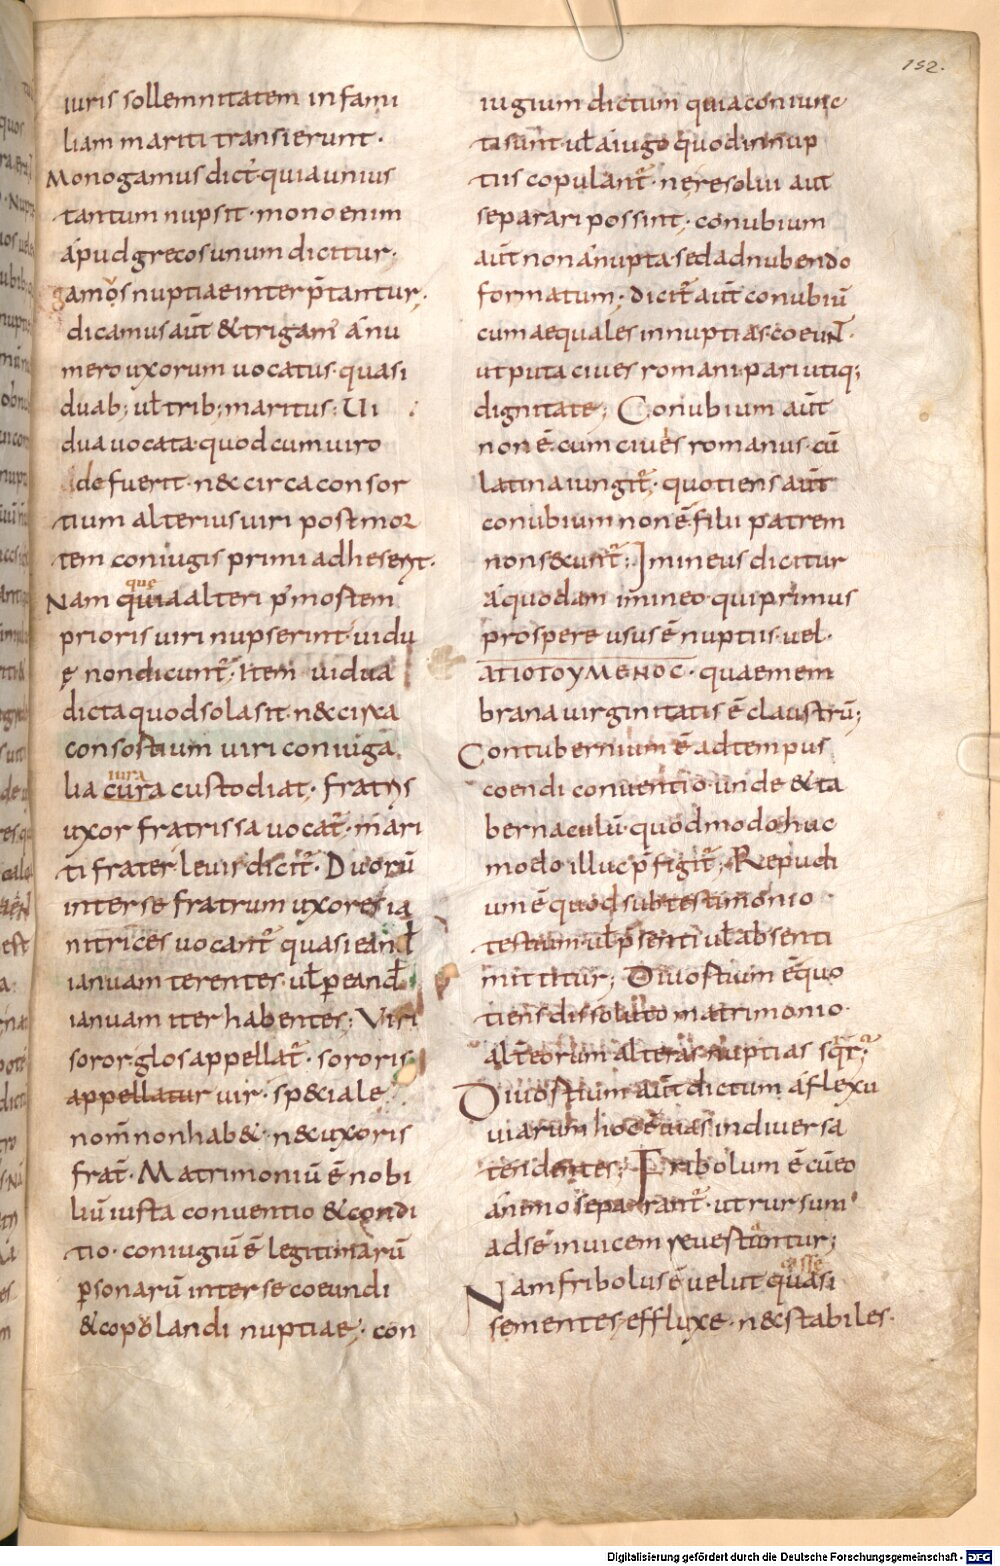 152.
iuris sollemnitatem infami
liam mariti transierunt·
Monogamus dict̄· quia unius
tantum nupsit· mono enim
apud grecos unum dicitur;
gamos nuptiae interp̄tantur·
dicamus aūt & trigam a nu
mero uxorum uocatus· quasi
duab; ul̄ trib; maritus; Ui
dua uocata· quod cum uiro
de fuerit· n& circa consor
tium alterius uiri post mor
tem coniugis primi adheserit·
que
Nam quia alteri p̄ mostem
prioris uiri nupserint· uidu
ę non dicunt̄; Item uidua
dicta quod sola sit· n& circa
consostium uiri coniuga
iura
lia cura custodiat; fratris
uxor fratrissa uocat̄· mari
ti frater leuir dicit̄· Duorū
inter se fratrum uxores ia
nitrices uocant̄ quasi eand̄
ianuam terentes· ul̄ p̄ eand̄
ianuam iter habentes; Viri
soror· glos appellat̄· sororis
appellatur uir· speciale
nom̄ non hab&· n& uxoris
frat̄· Matrimoniū ē nobi
liū iusta conuentio & condi
tio· coniugiū ē legitimarū
p̄sonarū inter se coeundi
& copolandi nuptiae; con
iugium dictum quia coniunc
ti sunt· ul̄ a iugo quod in nup
tiis copulant̄· ne resolui aut
separari possint; conubium
aūt non a nupta· sed ad nubendo
formatum; dicit̄ aūt conubiū
cum aequales in nuptias coeunt·
ut puta ciues romani· pari utiq;
dignitate; Conubium aūt
non ē· cum ciues romanus· cū
latina iungit̄· quotiens aūt
conubium non ē filii patrem
non secunt̄; Imineus dicitur
a quodam imineo· qui primus
prospere usus ē nuptiis· uel·
ατιοτογμενοс· quae mem
brana uirginitatis ē claustrū;
Contubernium ē ad tempus
coendi conuentio· unde & ta
bernaculū· quod modo huc
modo illuc p̄figit̄; Repudi
um ē quod sub testimonio·
testium· ul̄ p̄senti ul̄ absenti
mittitur; Diuostium ē quo
tiens dissoluto matrimonio·
alt̄ eorum alteras nuptias sq̄t̄;
Diuostium aūt dictum a flexu
uiarum hoc ē uias in diuersa
tendentes; Fribolum ē cū eo
animo separant̄· ut rursum
ad se inuicem reuestantur;
esse
Nam fribolus ē uelut quasi
sementes· effluxe· n& stabiles·
Digitalisierung gefördert durch die Deutsche Forschungsgemeinschaft · DFG